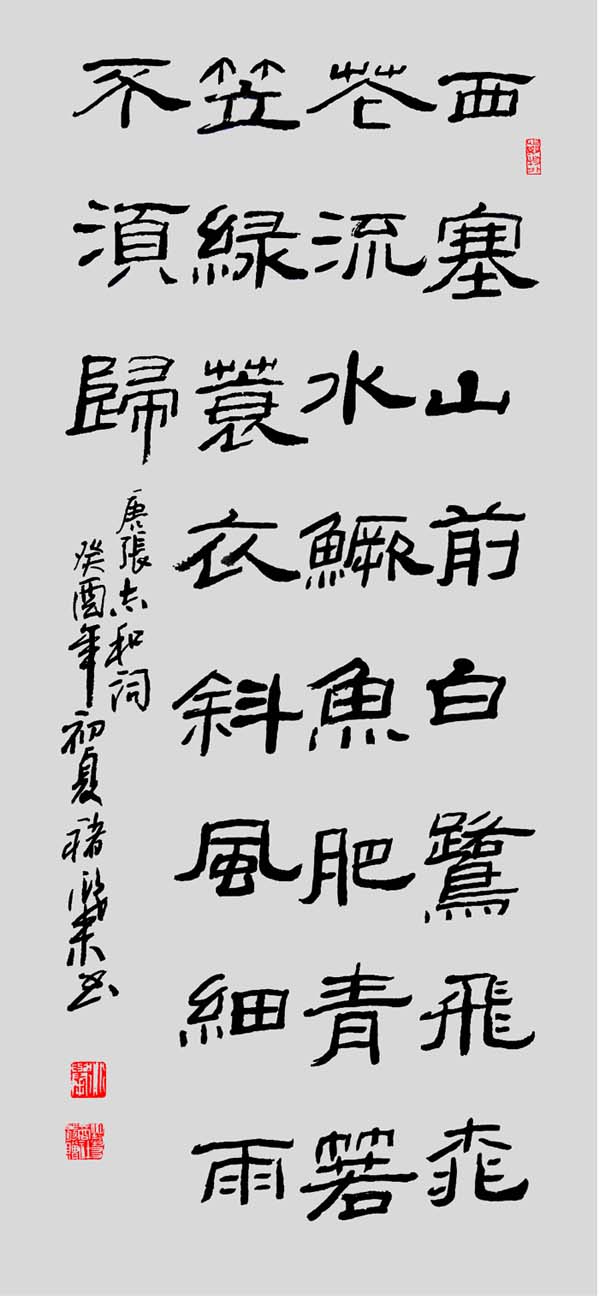 西塞山前白鷺飛桃
花流水鱖魚肥青箬
笠緑蓑衣斜風細雨
不湏歸
唐張志和詞
癸酉年初夏褚